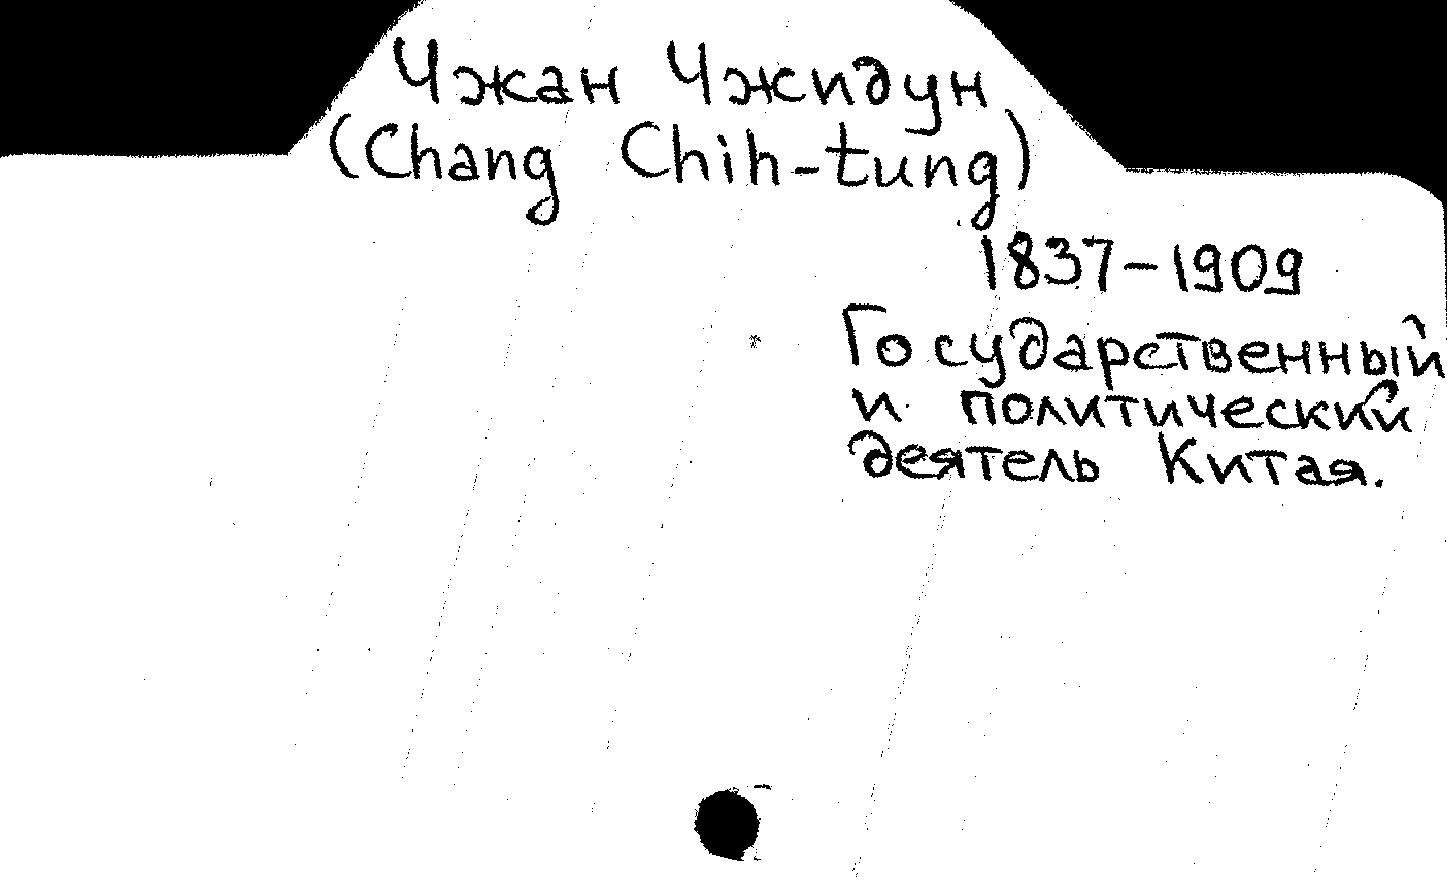 Чжан Чжидун
(Chang Chih-tung)
1837-1909
Государственный
и политический
деятель Китая.